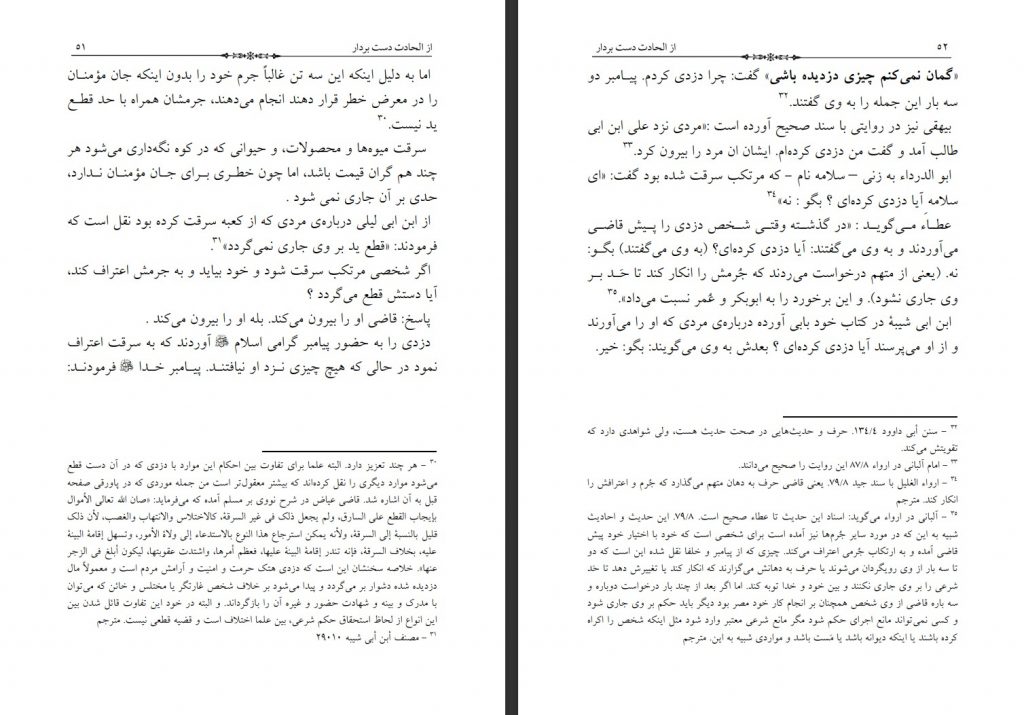 از الحادت دست بردار ۵۱
اما به دلیل اینکه این سه تن غالباً جرم خود را بدون اینکه جان مؤمنان
را در معرض خطر قرار دهند انجام می‌دهند، جرمشان همراه با حد قطع
ید نیست.۳۰
سرقت میوه‌ها و محصولات، و حیوانی که در کوه نگه‌داری می‌شود هر
چند هم گران قیمت باشد، اما چون خطری برای جان مؤمنان ندارد،
حدی بر آن جاری نمی شود .
از ابن ابی لیلی درباره‌ی مردی که از کعبه سرقت کرده بود نقل است که
فرمودند: «قطع ید بر وی جاری نمی‌گردد»۳۱.
اگر شخصی مرتکب سرقت شود و خود بیاید و به جرمش اعتراف کند،
آیا دستش قطع می‌گردد ؟
پاسخ: قاضی او را بیرون می‌کند. بله او را بیرون می‌کند .
دزدی را به حضور پیامبر گرامی اسلام ﷺ آوردند که به سرقت اعتراف
نمود در حالی که هیچ چیزی نزد او نیافتند. پیامبر خدا ﷺ فرمودند:
۳۰ - هر چند تعزیز دارد. البته علما برای تفاوت بین احکام این موارد با دزدی که در آن دست قطع
می‌شود موارد دیگری را نقل کرده‌اند که بیشتر معقول‌تر است من جمله موردی که در پاورقی صفحه
قبل به آن اشاره شد. قاضی عیاض در شرح نووی بر مسلم آمده که می‌فرماید: «صان الله تعالی الأموال
بإیجاب القطع علی السارق، ولم یجعل ذلک فی غیر السرقة، کالاختلاس والانتهاب والغصب، لأن ذلک
قلیل بالنسبة إلی السرقة، ولأنه یمکن استرجاع هذا النوع بالاستدعاء إلی ولاة الأمور، وتسهل إقامة البینة
علیه، بخلاف السرقة، فإنه تندر إقامة البینة علیها، فعظم أمرها، واشتدت عقوبتها، لیکون أبلغ فی الزجر
عنها». خلاصه سخنشان این است که دزدی هتک حرمت و امنیت و آرامش مردم است و معمولاً مال
دزدیده شده دشوار بر می‌گردد و پیدا می‌شود بر خلاف شخص غارتگر یا مختلس و خائن که می‌توان
با مدرک و بینه و شهادت حضور و غیره آن را بازگرداند. و البته در خود این تفاوت قائل شدن بین
این انواع از لحاظ استحقاق حکم شرعی، بین علما اختلاف است و قضیه قطعی نیست. مترجم
۳۱ - مصنف أبن أبی شیبه ۲۹۰۱۰
۵۲ از الحادت دست بردار
«گمان نمی‌کنم چیزی دزدیده باشی» گفت: چرا دزدی کردم. پیامبر دو
سه بار این جمله را به وی گفتند.۳۲
بیهقی نیز در روایتی با سند صحیح آورده است :«مردی نزد علی ابن ابی
طالب آمد و گفت من دزدی کرده‌ام. ایشان ان مرد را بیرون کرد.۳۳
ابو الدرداء به زنی – سلامه نام - که مرتکب سرقت شده بود گفت: «ای
سلامه آیا دزدی کرده‌ای ؟ بگو : نه»۳۴
عطاء می‌گوید : «در گذشته وقتی شخص دزدی را پیش قاضی
می‌آوردند و به وی می‌گفتند: آیا دزدی کرده‌ای؟ (به وی می‌گفتند) بگو:
نه. (یعنی از متهم درخواست می‌ردند که جُرمش را انکار کند تا حَد بر
وی جاری نشود). و این برخورد را به ابوبکر و عُمر نسبت می‌داد».۳۵
ابن ابی شیبهٔ در کتاب خود بابی آورده درباره‌ی مردی که او را می‌آورند
و از او می‌پرسند آیا دزدی کرده‌ای ؟ بعدش به وی می‌گویند: بگو: خیر.
۳۲ - سنن أبی داوود ۱۳٤/٤. حرف و حدیث‌هایی در صحت حدیث هست، ولی شواهدی دارد که
تقویتش می‌کند.
۳۳ - امام آلبانی در ارواء ۸۷/۸ این روایت را صحیح می‌دانند.
۳۴ - ارواء الغلیل با سند جید ۷۹/۸. یعنی قاضی حرف به دهان متهم می‌گذارد که جُرم و اعترافش را
انکار کند. مترجم
۳۵ - آلبانی در ارواء می‌گوید: اسناد این حدیث تا عطاء صحیح است. ۷۹/۸. این حدیث و احادیث
شبیه به این که در مورد سایر جُرم‌ها نیز آمده است برای شخصی است که خود با اختیار خود پیش
قاضی آمده و به ارتکاب جُرمی اعتراف می‌کند. چیزی که از پیامبر و خلفا نقل شده این است که دو
تا سه بار از وی رویگردان می‌شوند یا حرف به دهانش می‌گزارند که انکار کند یا تغییرش دهد تا حَد
شرعی را بر وی جاری نکنند و بین خود و خدا توبه کند. اما اگر بعد از چند بار درخواست دوباره و
سه باره قاضی از وی شخص همچنان بر انجام کار خود مصر بود دیگر باید حکم بر وی جاری شود
و کسی نمی‌تواند مانع اجرای حکم شود مگر مانع شرعی معتبر وارد شود مثل اینکه شخص را اکراه
کرده باشند یا اینکه دیوانه باشد یا مَست باشد و مواردی شبیه به این. مترجم